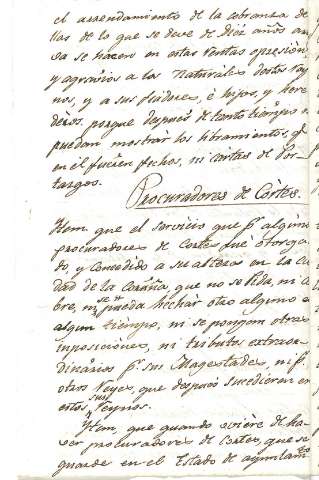 el arrendamiento de la cobranza de
llas de lo que se deve de Diéz años
sa se hazen en estas Rentas opresión
y agravios a los Naturales destos Rey
nos, y a sus fiadores, è hijos, y here
déros. porque despues de tanto tiempo
puedan mostrar los libramientos, q
en él fueren fechos, ni cartas de Pos
targos.
Procuradores de Córtes.
Yten que el servicio que pr algunos
procuradores de Cortes fue otorga
do, y concedido a su alteza en la Ciu
dad de la Coruña, que no se pida, ni co
bre, ni se pueda hechár otro algimo
algun tiempo, ni se pongan otras
imposiciónes, ni tributos extraor
dinários pr. sus Magestades, ni pr.
otros Reyes, que despues sucedieren en
estos sus Reynos.
Yten, que quando oviére de ha
ser procuradores de Cortes, que se
guarde en el Estado de ayuntamto